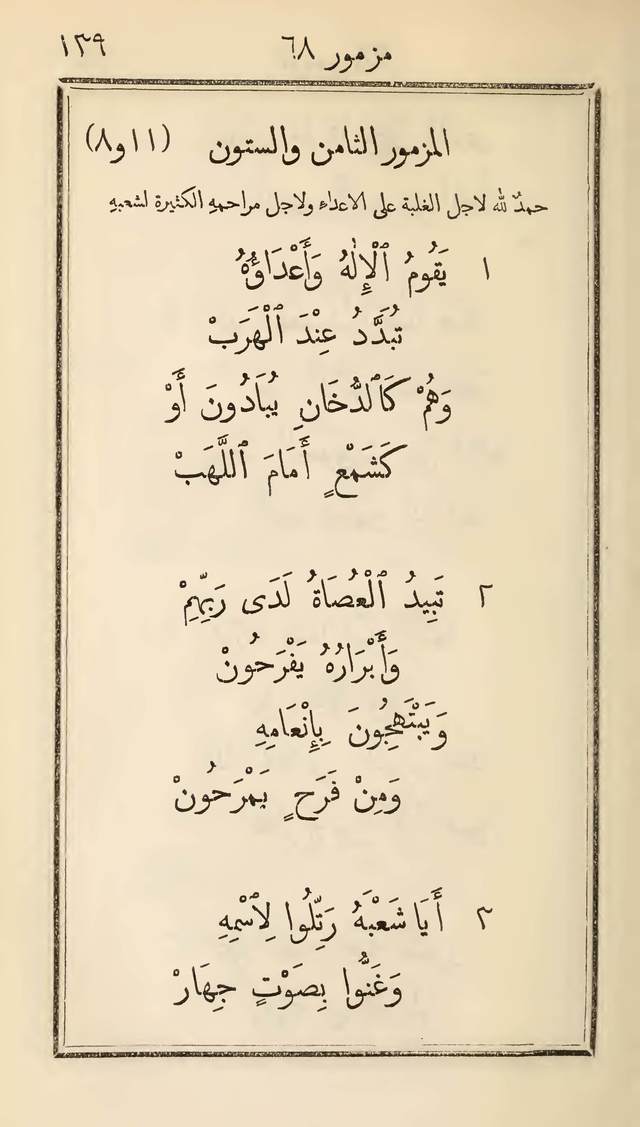 مزمور ٦٨ ١٣٩
المزمور الثامن والستون (١١ و٨)
حمدٌ لله لاجل الغلبة على الاعداءِ ولاجل مراحمهِ الكثيرة لشعبهِ
١ يَقُومُ ٱلْإِلٰهُ وَأَعْدَاؤُهُ
تُبَدَّدُ عِنْدَ ٱلْهَرَبْ
وَهُمْ كَٱلدُّخَانِ يُبَادُونَ أَوْ
كَشَمْعٍ أَمَامَ ٱللَّهَبْ
٢ تَبِيدُ ٱلْعُصَاةُ لَدَى رَبِّهِمْ
وَأَبْرَارُهُ يَفْرَحُونْ
وَيَبْتَهِجُونَ بِإِنْعَامِهِ
وَمِنْ فَرَحٍ يَمْرَحُونْ
٣ أَيَا شَعْبَهُ رَتِّلُوا لِٱسْمِهِ
وَغَنُّوا بِصَوْتٍ جِهَارْ